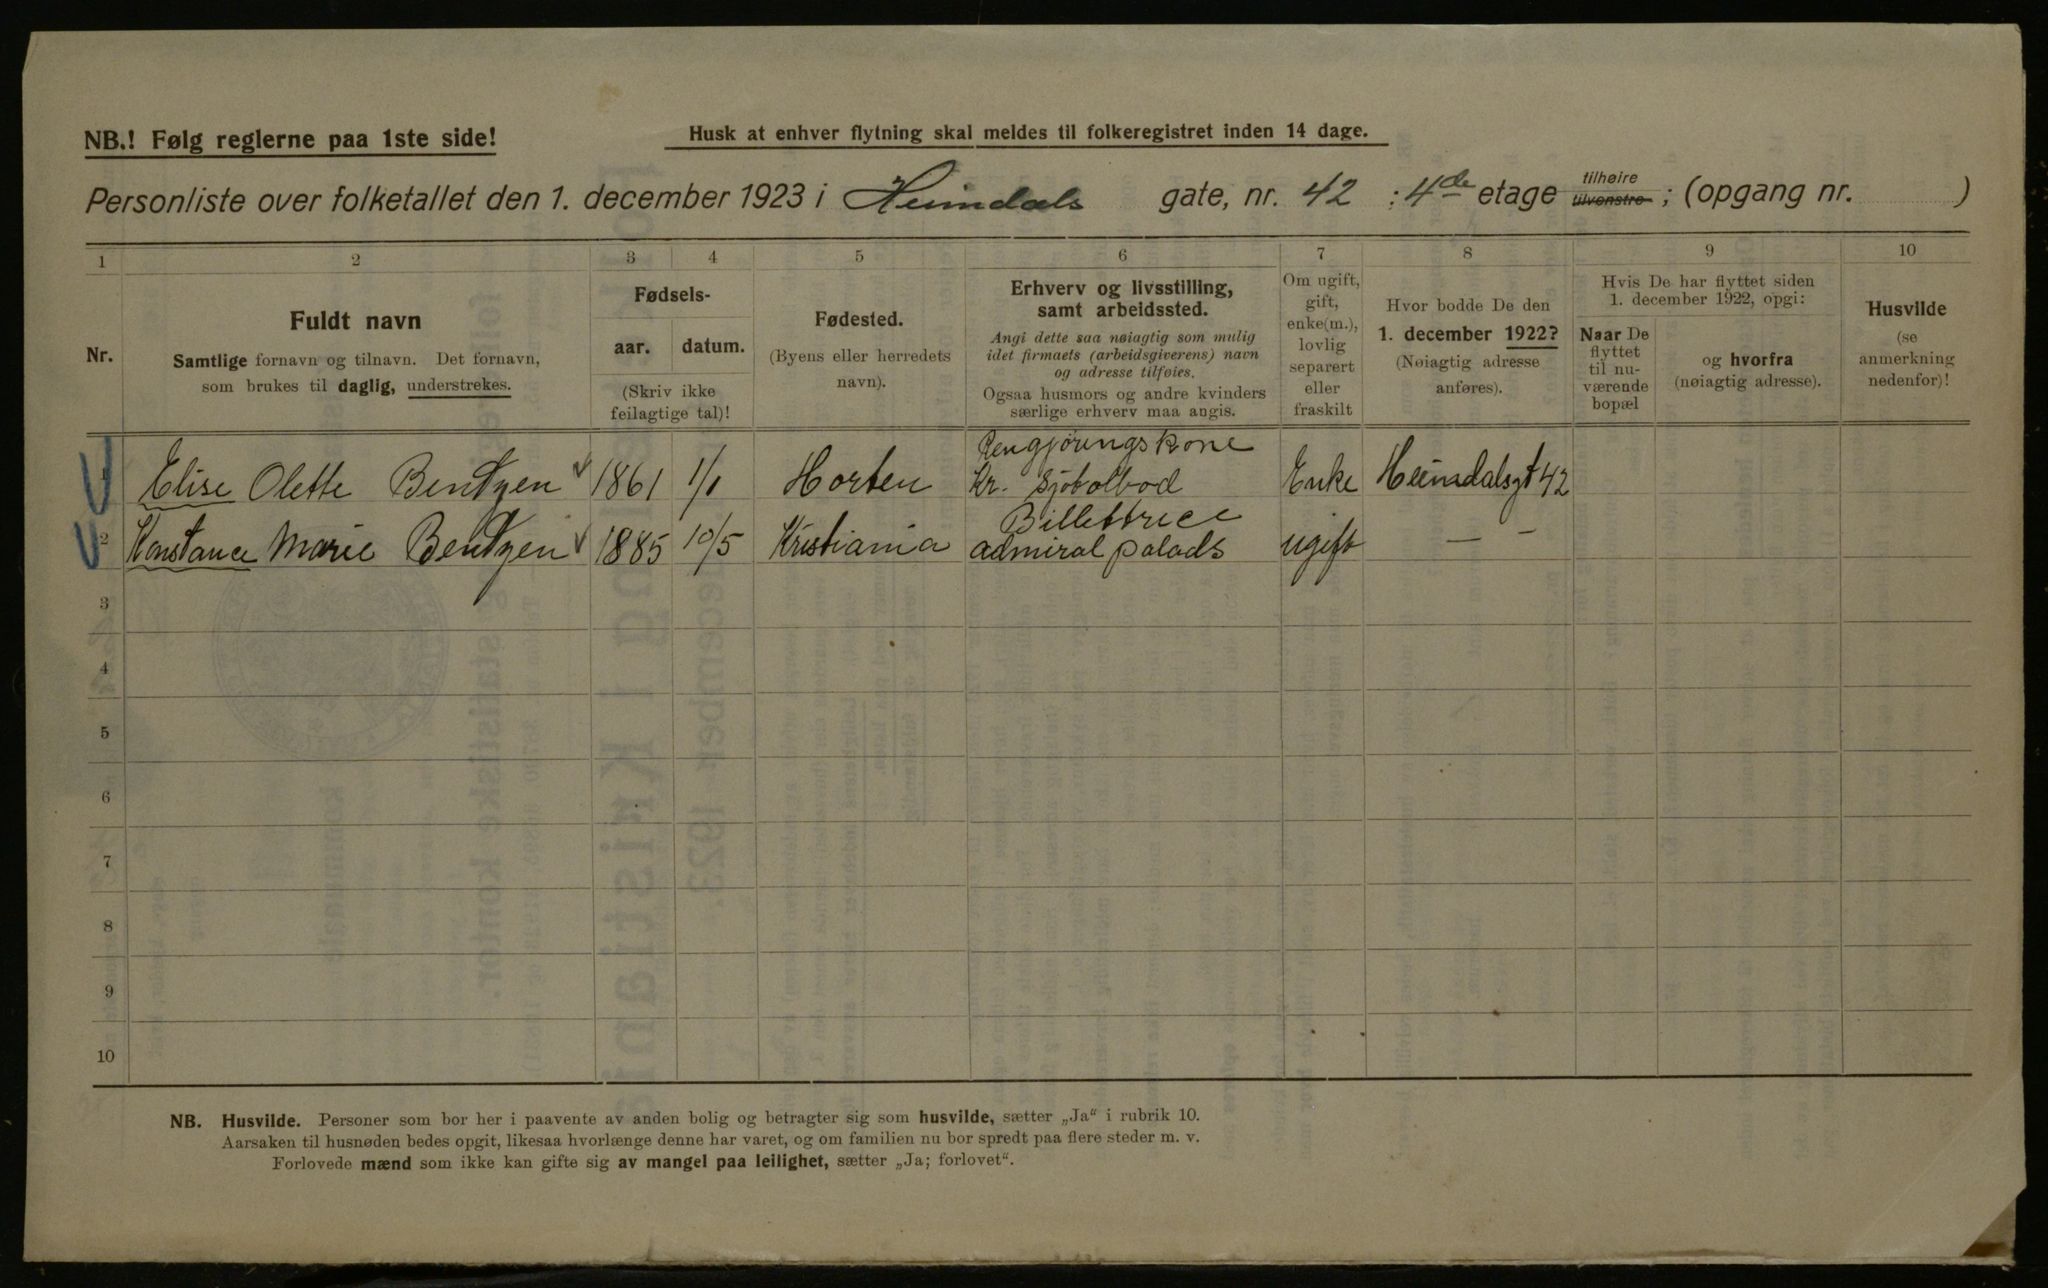 NB.! Følg reglerne paa 1ste side!
Husk at enhver flytning skal meldes til folkeregistret inden 14 dage.
Personliste over folketallet den 1. december 1923 i Heimdals gate, nr. 42 ; 4de etage tilhøire tilvenstre ; (opgang nr. )
1 2 3 4 5 6 7 8 9 10
Nr.
Fuldt navn
Samtlige fornavn og tilnavn. Det fornavn,
som brukes til daglig, understrekes.
Fødsels-
aar. datum.
(Skriv ikke
feilagtige tal)!
Fødested.
(Byens eller herredets
navn).
Erhverv og livsstilling,
samt arbeidssted.
Angi dette saa nøiagtig som mulig
idet firmaets (arbeidsgiverens) navn
og adresse tilføies.
Ogsaa husmors og andre kvinders
særlige erhverv maa angis.
Om ugift,
gift,
enke(m.),
lovlig
separert
eller
fraskilt
Hvor bodde De den
1. december 1922?
(Nøiagtig adresse
anføres).
Hvis De har flyttet siden
1. december 1922, opgi:
Naar De
flyttet
til nu-
værende
bopæl
og hvorfra
(nøiagtig adresse).
Husvilde
(se
anmerkning
nedenfor)!
Rengjøringskone
1 Elise Olette Bentzen 1861 1/1 Horten Kr. Enke Heimdalsgt 42
Billettrice
2 Konstance Marie Bentzen 1885 10/5 Kristiania admiral palads ugift — —
3
4
5
6
7
8
9
10
NB. Husvilde. Personer som bor her i paavente av anden bolig og betragter sig som husvilde, sætter „Ja“ i rubrik 10.
Aarsaken til husnøden bedes opgit, likesaa hvorlænge denne har varet, og om familien nu bor spredt paa flere steder m. v.
Forlovede mænd som ikke kan gifte sig av mangel paa leilighet, sætter „Ja; forlovet“.